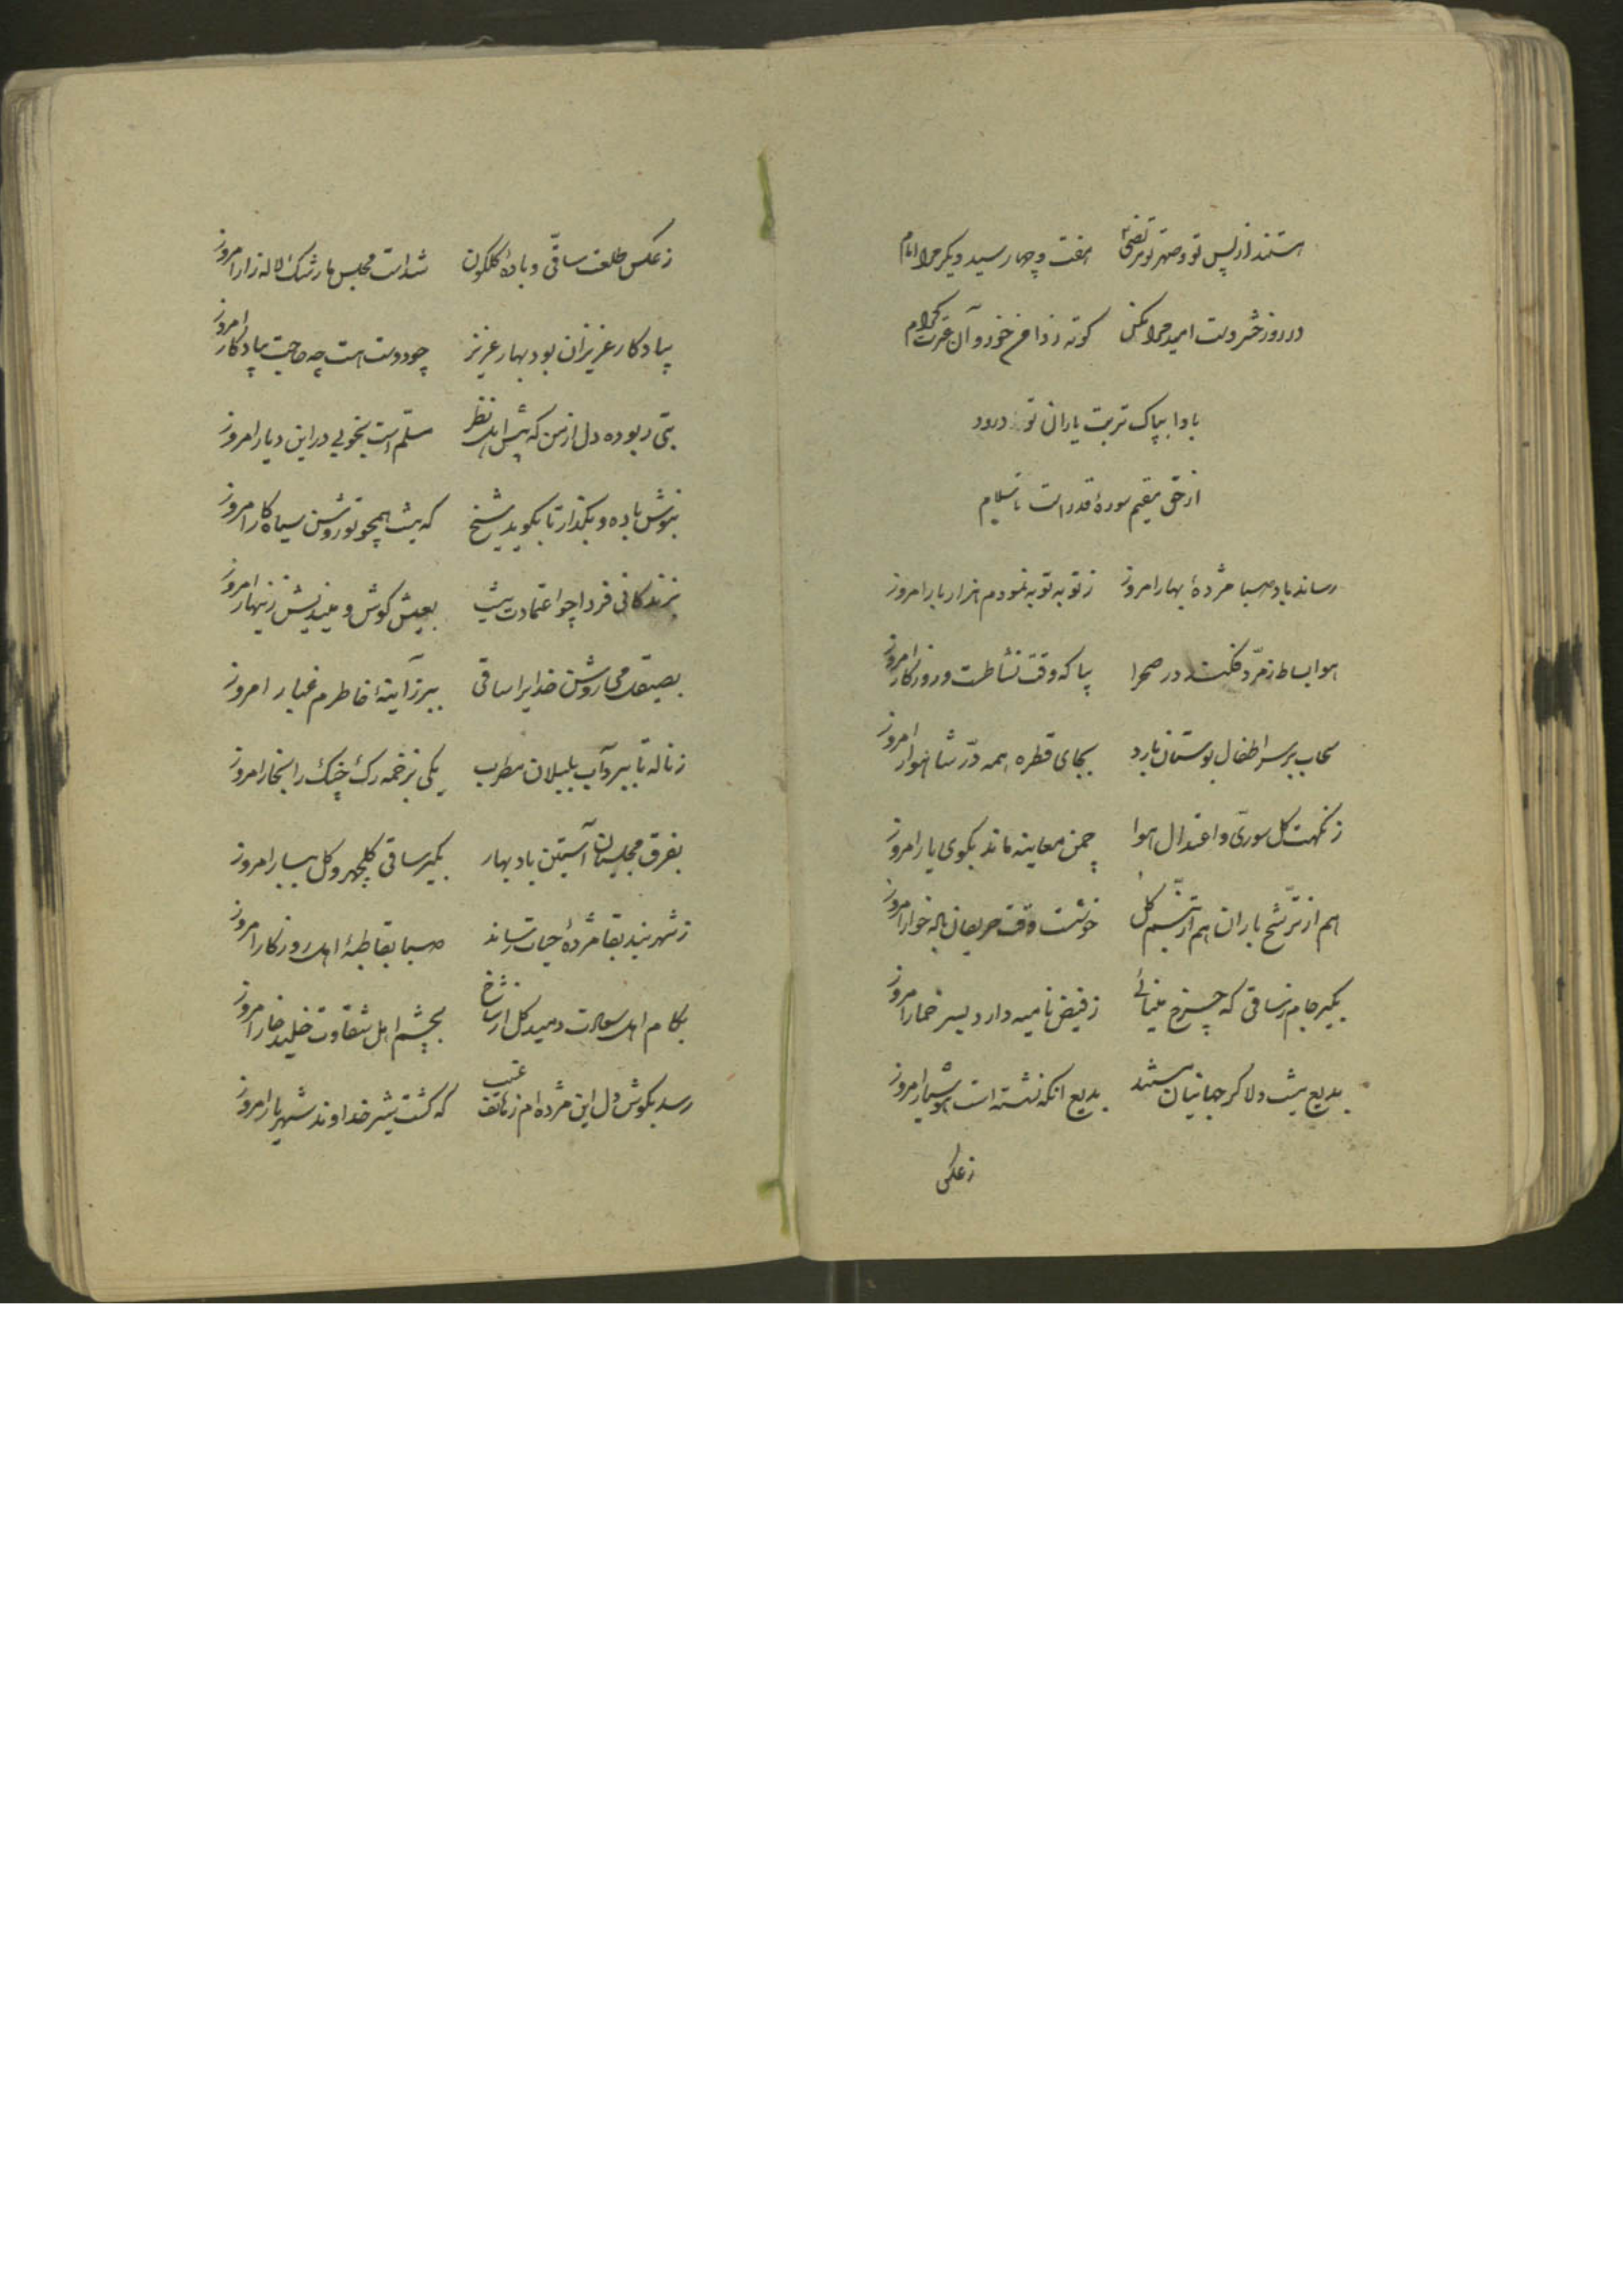 هستند از پس تو و صهر تو مرتضی هفت و چهار سید دیگر مرا امام
در روز حشر دست امید مرا مکن کوته ز دامن خود و آن عترت کرام
بادا بپاک تربت یاران تو درود
از حق مقیم سورهٔ قدر است تا سلام
رساند باد صبا مژدهٔ بهار امروز ز توبه توبه نمودم هزار بار امروز
هوا بساط زمرّد فکند در صحرا بیا که وقت نشاطست و روز کار امروز
سحاب بر سر اطفال بوستان بارد بجای قطره همه درّ شاهوار امروز
ز نکهت گل سوری و اعتدال هوا چمن معاینه ماند بکوی یار امروز
هم از ترشّح باران هم از تبسّم گل خوشست وقت حریفان باده خوار امروز
بگیر جام ز ساقی که چرخ مینائی ز فیض نامیه دارد بسر خمار امروز
بدیع نیست دلا گر جهانیان مستند بدیع آنکه نشسته است هوشیار امروز
ز عکس
ز عکس طلعت ساقی و بادهٔ گلگون شداست مجلس ما رشک لاله زار امروز
بیادگار عزیزان بود بهار عزیز چو دوست هست چه حاجت بیادگار امروز
بتی ربوده دل از من که پیش اهل نظر مسلّم است بخوبی در این دیار امروز
بنوش باده و بگذار تا بگوید شیخ که نیست همچو تو روشن سیاه کار امروز
بزندگانی فردا چو اعتمادت نیست بعیش کوش و میندیش زینهار امروز
بصیقل می روشن خدایرا ساقی ببر ز آینهٔ خاطرم غبار امروز
ز ناله تا ببرد آب بلبلان مطرب یکی بزخمه رگ چنگ را بخار امروز
بفرق مجلسیان آستین باد بهار بگیر ساقی گلچهر و گل ببار امروز
ز شهر بند بقا مژدهٔ حیات رساند صبا بقاطبهٔ اهل روزگار امروز
بکام اهل سعادت دمید گل از شاخ بچشم اهل شقاوت خلید خار امروز
رسد بگوش دل این مژده ام ز هاتف غیب که گشت شیر خداوند شهریار امروز